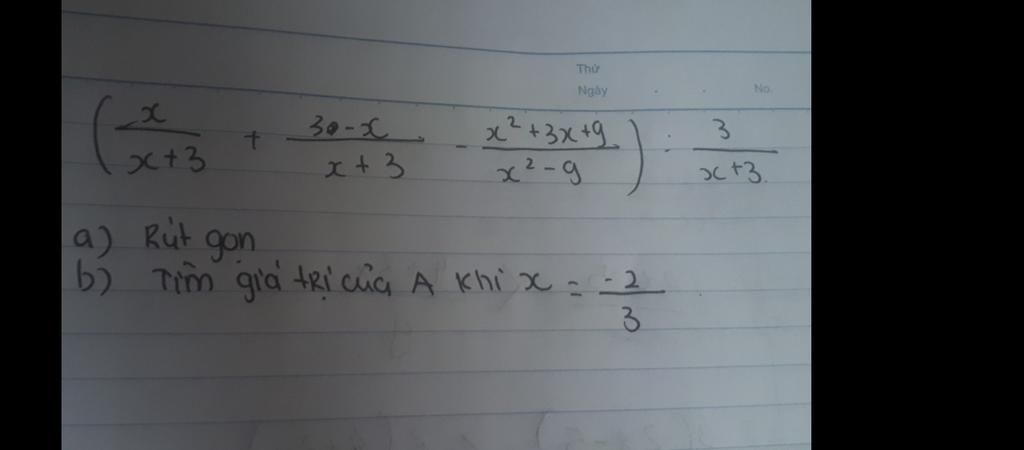 Thứ
Ngày . . No.
( x/(x+3) + (3-x)/(x+3) - (x²+3x+9)/(x²-9) ) : 3/(x+3)
a) Rút gọn
b) Tìm giá trị của A khi x = -2/3